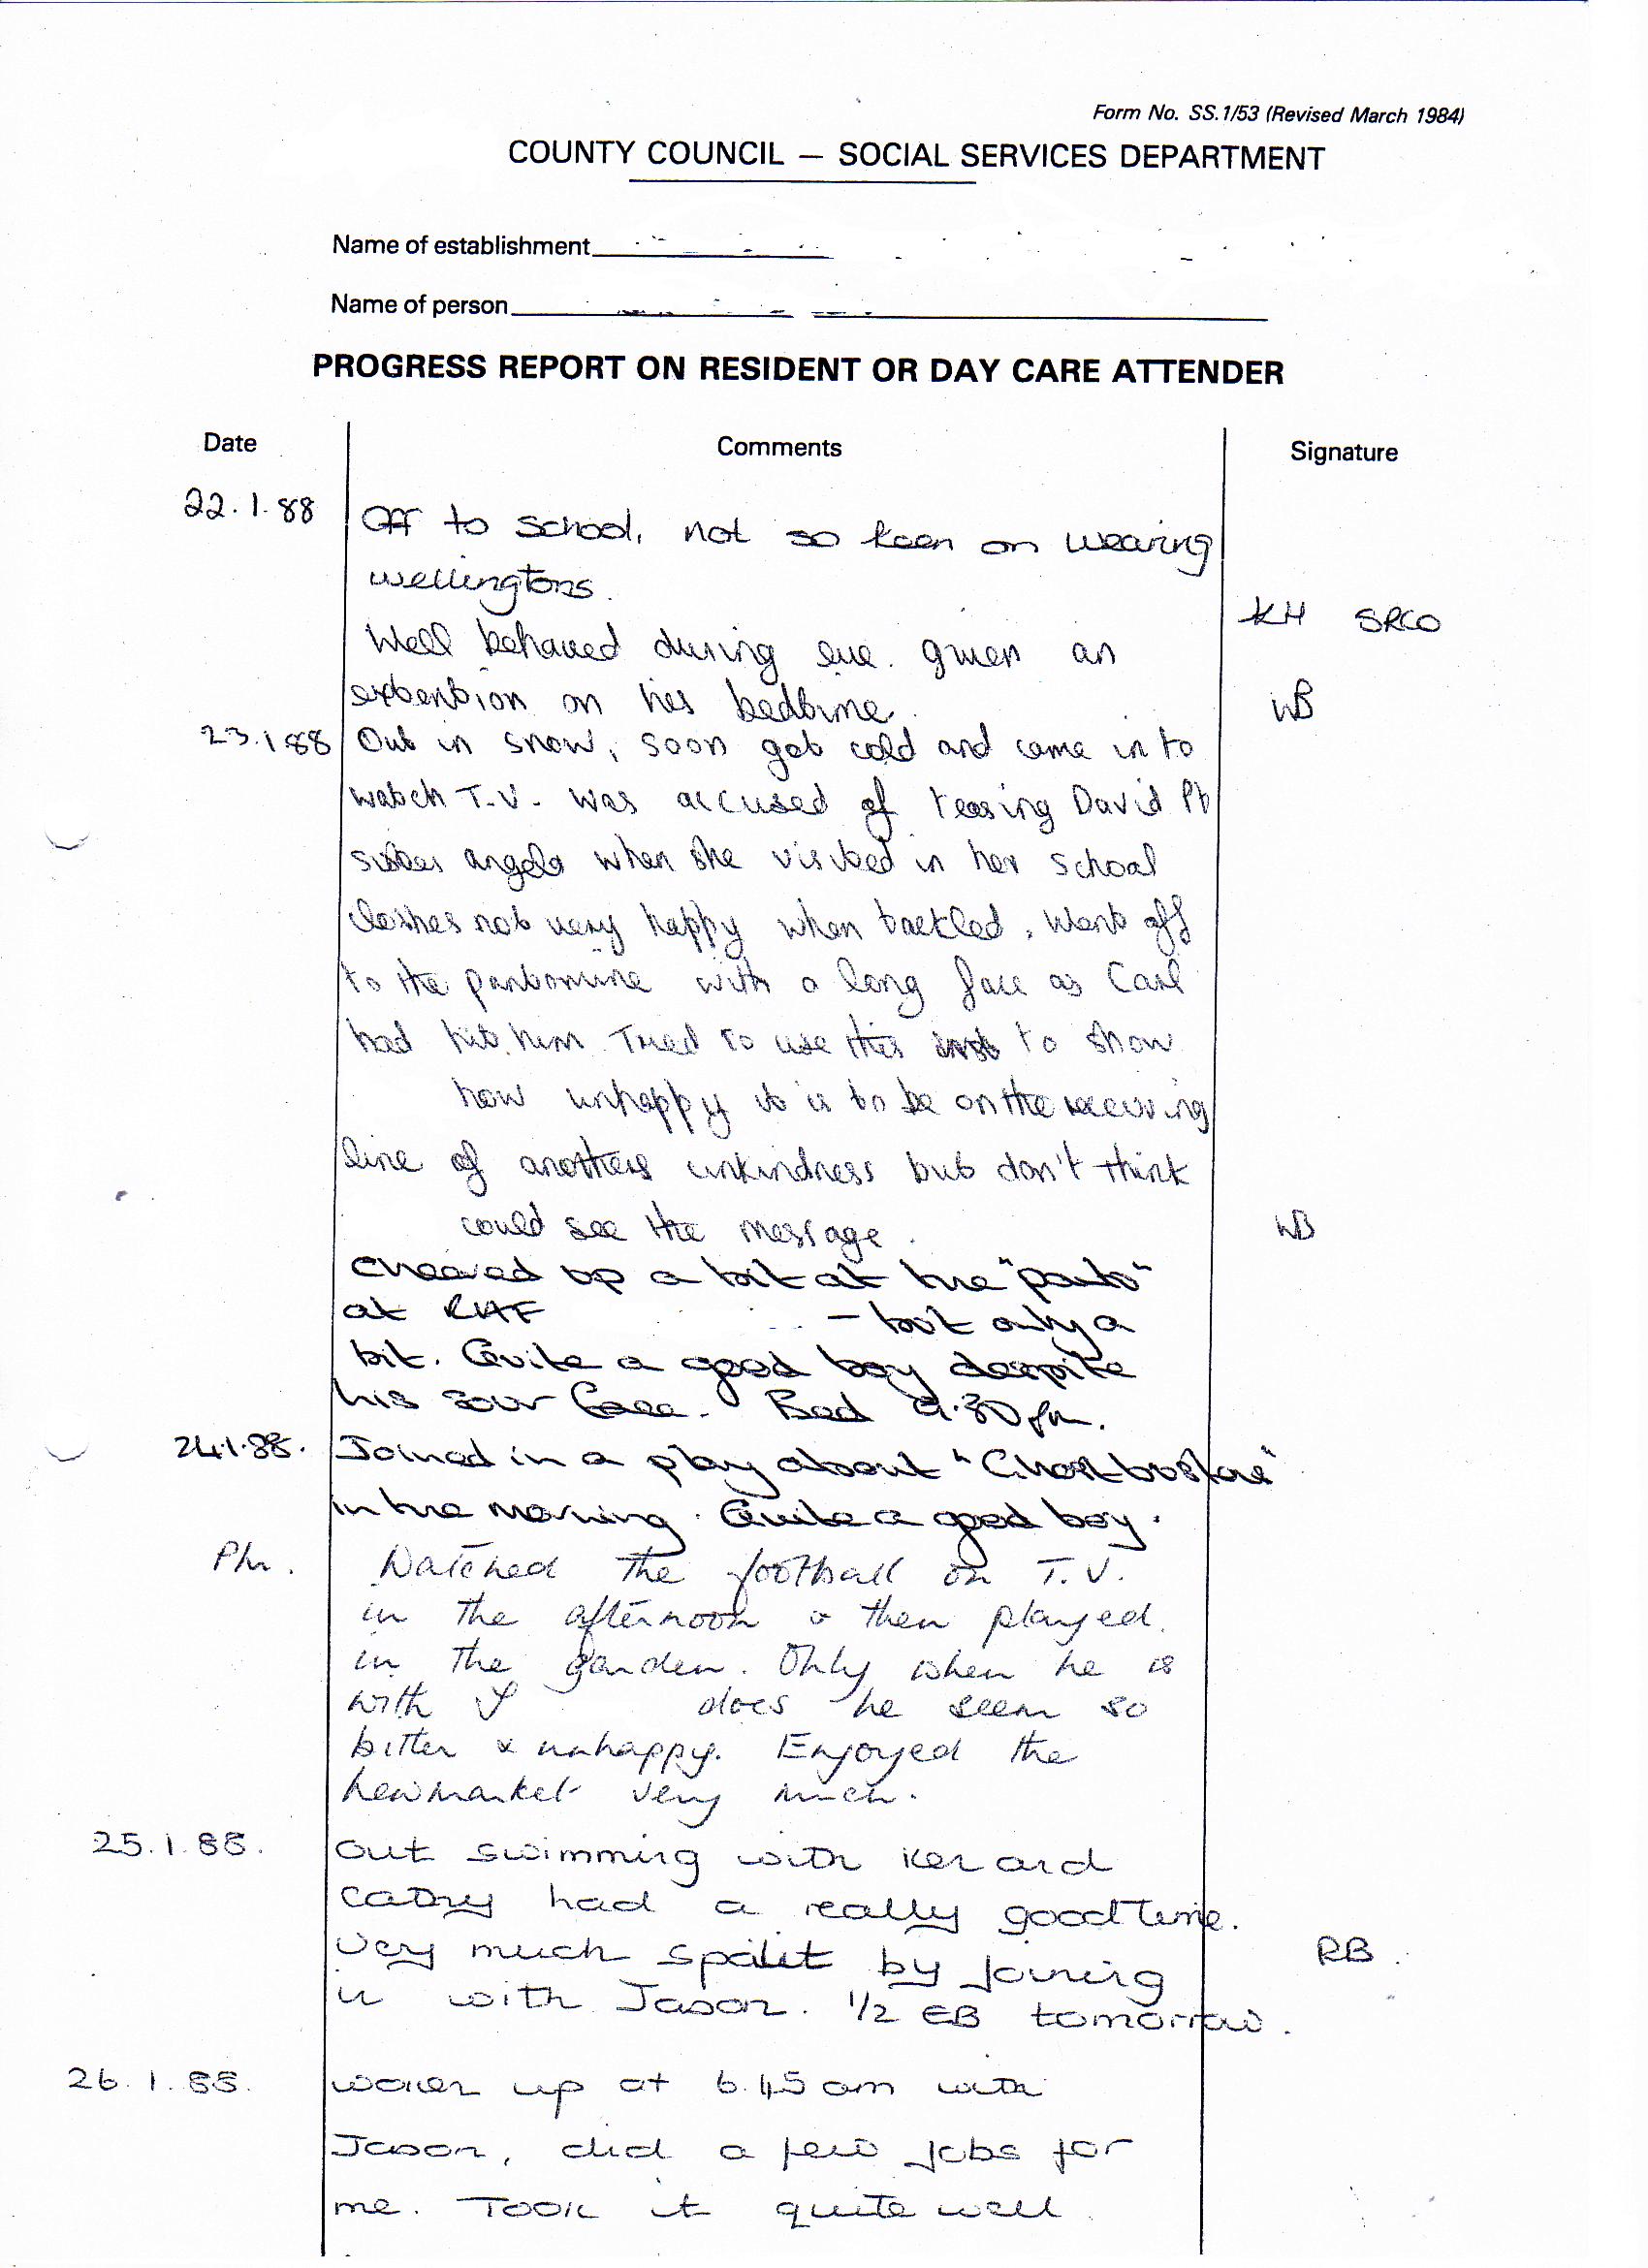 Form No. SS.1/53 (Revised March 1984)
COUNTY COUNCIL — SOCIAL SERVICES DEPARTMENT
Name of establishment
Name of person
PROGRESS REPORT ON RESIDENT OR DAY CARE ATTENDER
Date Comments Signature
22.1.88 Off to school, not so keen on wearing
wellingtons.
KH SRCO
Well behaved during eve. given an
extention on his bedtime. WB
23.1.88 Out in snow, soon got cold and came in to
watch T.V. was accused of teasing David
sister angela when she visited in her school
clothes not very happy when tackled. Went off
to the pantomine with a long face as Carl
had hit him. Tried to use this to show
how unhappy it is to be on the receiving
line of anothers unkindness but don't think
could see the message. WB
Cheered up a bit at the "panto"
at RAF – but only a
bit. Quite a good boy despite
his sour face. Bed 9.30pm.
24.1.88. Joined in a play about "Ghostbusters"
in the morning. Quite a good boy.
Pm. Watched the football on T.V.
in the afternoon & then played
in the garden. Only when he is
with does he seem so
bitter & unhappy. Enjoyed the
newmarket very much.
25.1.88. out swimming with Ken and
Cathy had a really good time.
Very much spoilt by joining RB.
in with Jason. 1/2 EB tomorrow.
26.1.88. woken up at 6.45am with
Jason, did a few jobs for
me. Took it quite well